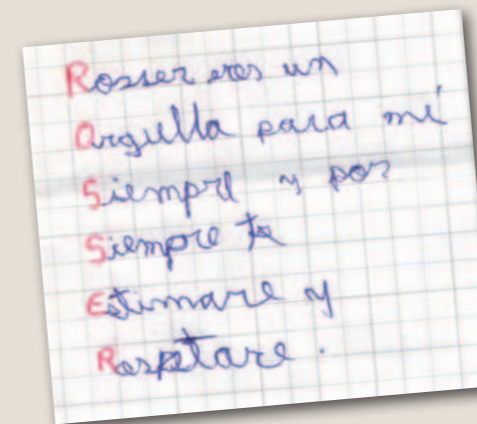 Rosser eres un
Orgulla para mí
Siempre y por
Siempre te
Estimare y
Respetare.